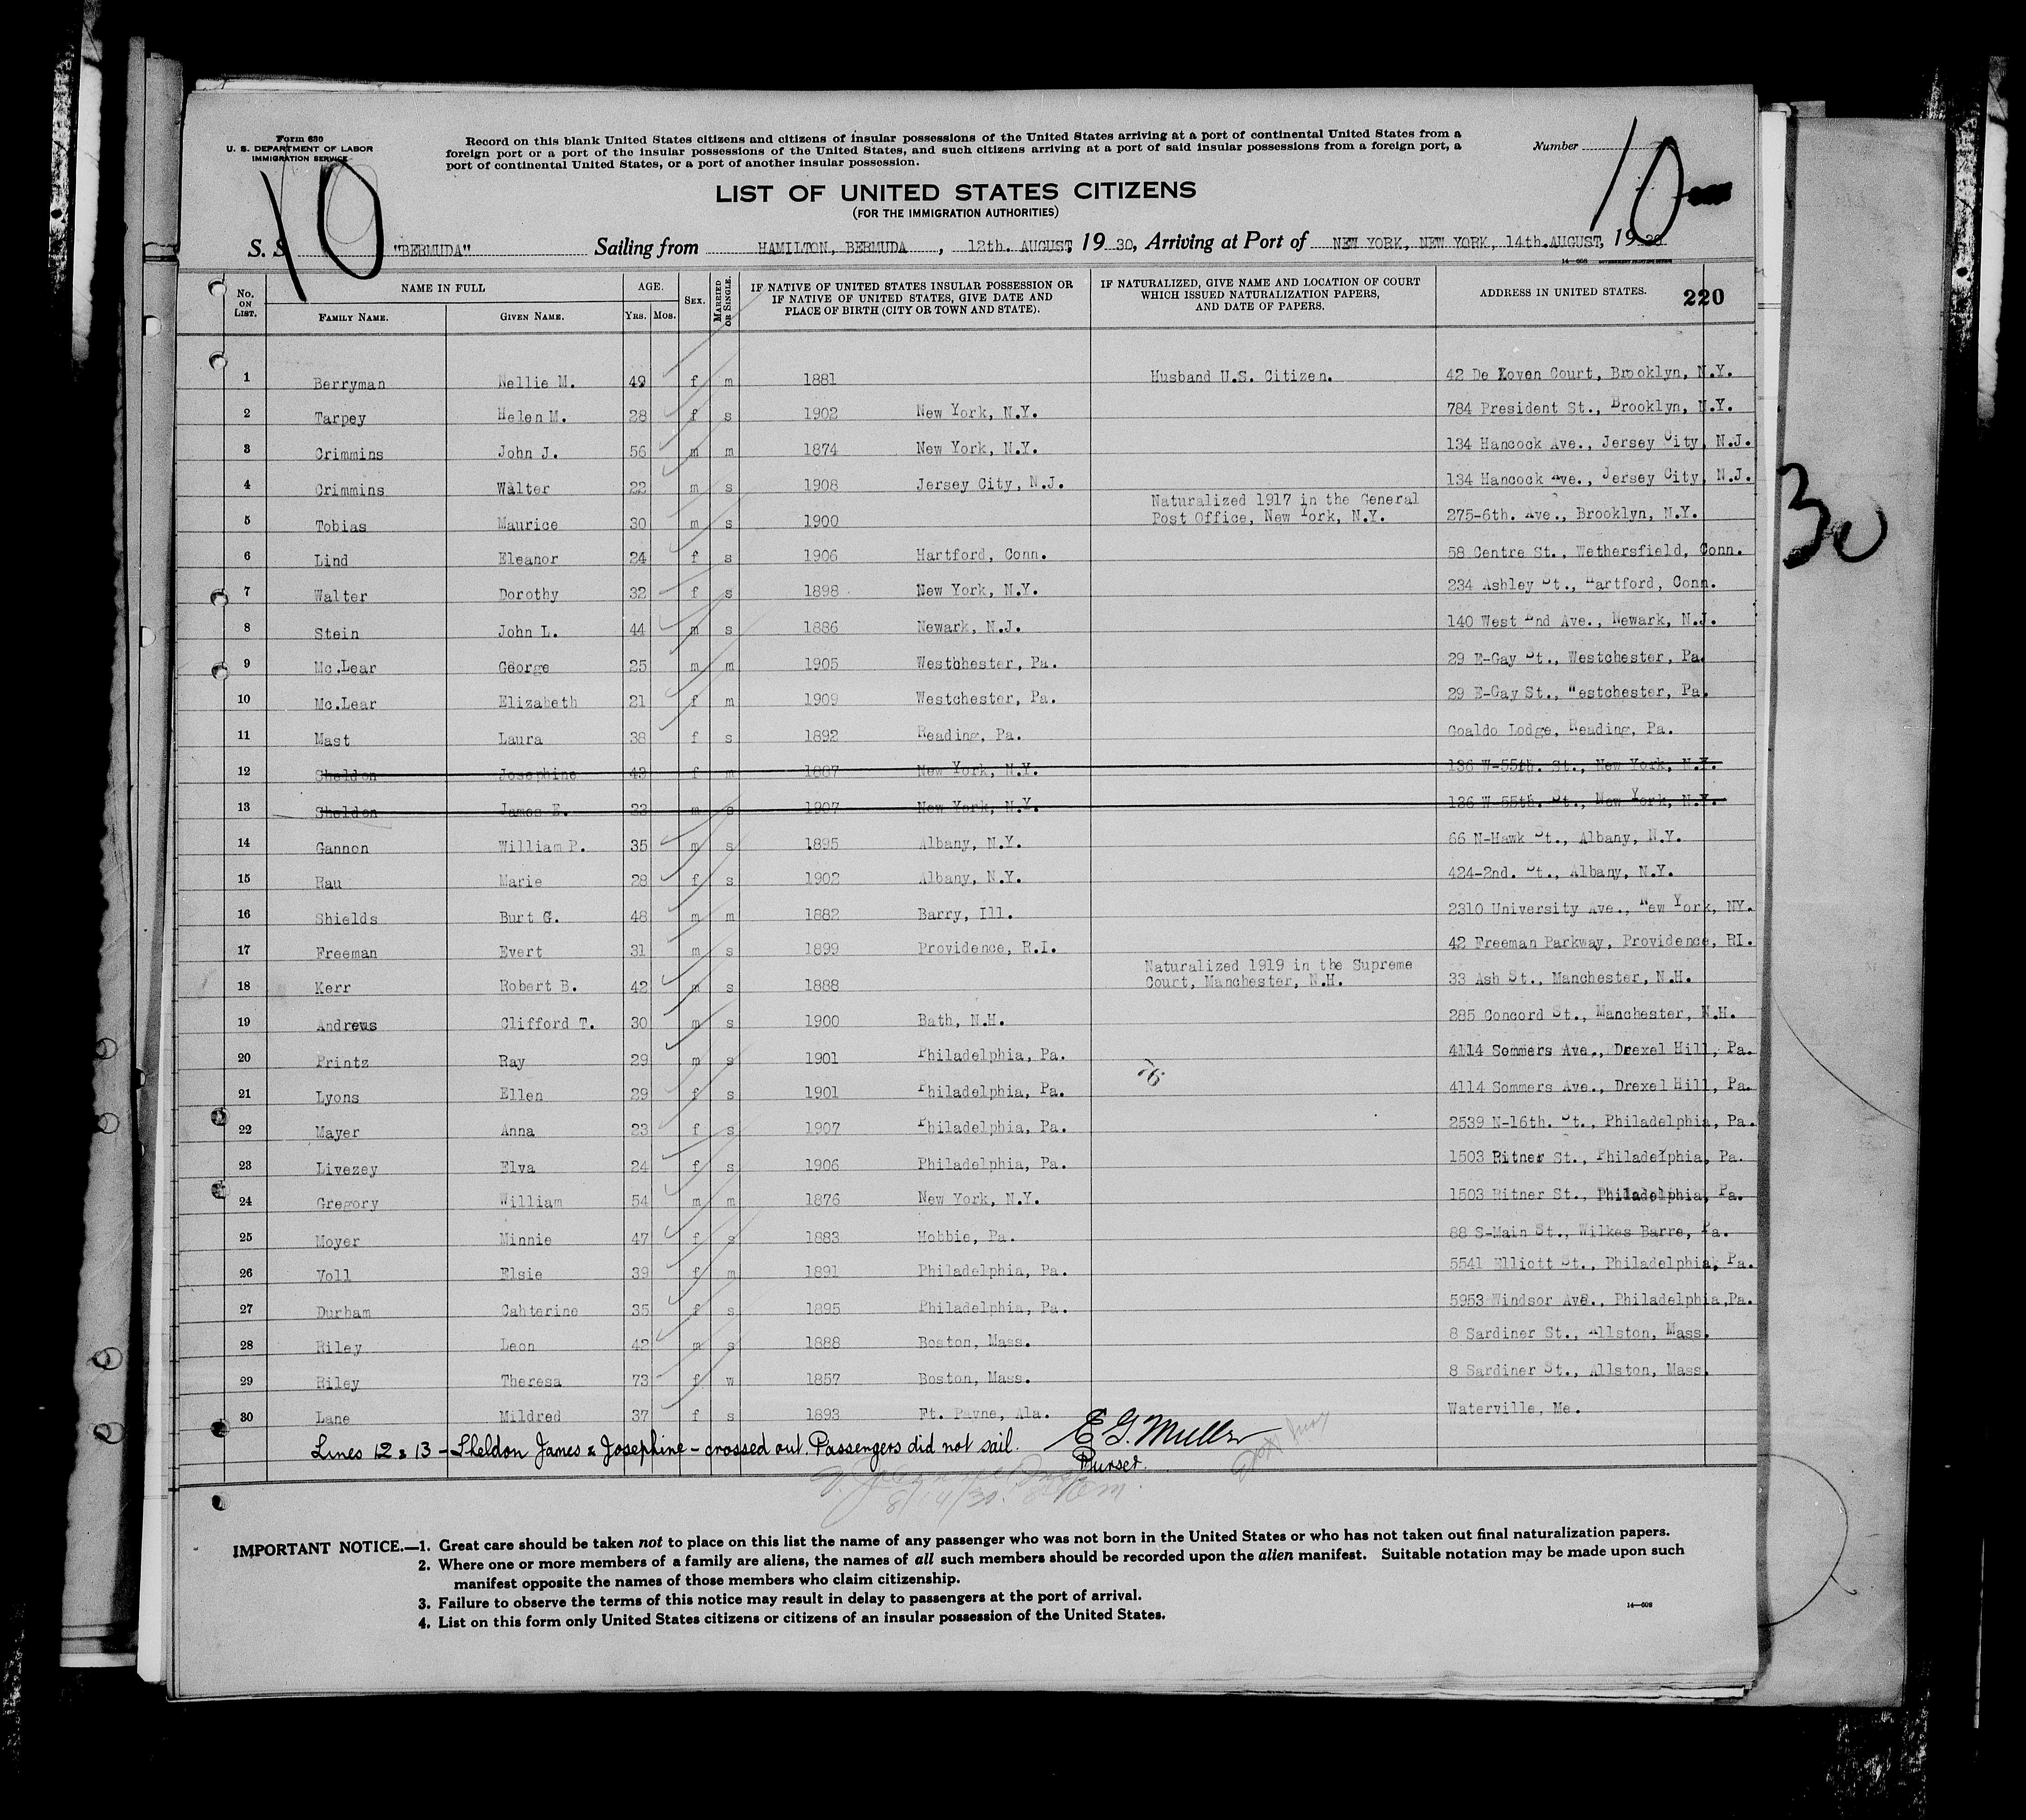 Form 630
U. S. DEPARTMENT OF LABOR
IMMIGRATION SERVICE
Record on this blank United States citizens and citizens of insular possessions of the United States arriving at a port of continental United States from a
foreign port or a port of the insular possessions of the United States, and such citizens arriving at a port of said insular possessions from a foreign port, a
port of continental United States, or a port of another insular possession.
Number
10
10
LIST OF UNITED STATES CITIZENS
(FOR THE IMMIGRATION AUTHORITIES)
S. S. "BERMUDA" Sailing from HAMILTON, BERMUDA, 12th. AUGUST, 19 30, Arriving at Port of NEW YORK, NEW YORK, 14th. AUGUST, 19 30.
14—608 GOVERNMENT PRINTING OFFICE
No. ON LIST. NAME IN FULL FAMILY NAME. GIVEN NAME. AGE. YRS. MOS. SEX. MARRIED OR SINGLE. IF NATIVE OF UNITED STATES INSULAR POSSESSION OR IF NATIVE OF UNITED STATES, GIVE DATE AND PLACE OF BIRTH (CITY OR TOWN AND STATE). IF NATURALIZED, GIVE NAME AND LOCATION OF COURT WHICH ISSUED NATURALIZATION PAPERS, AND DATE OF PAPERS. ADDRESS IN UNITED STATES. 220
1 Berryman Nellie M. 49 f m 1881 Husband U.S. Citizen. 42 De Koven Court, Brooklyn, N.Y.
2 Tarpey Helen M. 28 f s 1902 New York, N.Y. 784 President St., Brooklyn, N.Y.
3 Crimmins John J. 56 m m 1874 New York, N.Y. 134 Hancock Ave., Jersey City, N.J.
4 Crimmins Walter 22 m s 1908 Jersey City, N.J. 134 Hancock Ave., Jersey City, N.J.
5 Tobias Maurice 30 m s 1900 Naturalized 1917 in the General Post Office, New York, N.Y. 275-6th. Ave., Brooklyn, N.Y.
6 Lind Eleanor 24 f s 1906 Hartford, Conn. 58 Centre St., Wethersfield, Conn.
7 Walter Dorothy 32 f s 1898 New York, N.Y. 234 Ashley St., Hartford, Conn.
8 Stein John L. 44 m s 1886 Newark, N.J. 140 West End Ave., Newark, N.J.
9 Mc.Lear George 25 m m 1905 Westchester, Pa. 29 E-Gay St., Westchester, Pa.
10 Mc.Lear Elizabeth 21 f m 1909 Westchester, Pa. 29 E-Gay St., Westchester, Pa.
11 Mast Laura 38 f s 1892 Reading, Pa. Coaldo Lodge, Reading, Pa.
12 Sheldon Josephine 43 f m 1887 New York, N.Y. 136 W-55th. St., New York, N.Y.
13 Sheldon James E. 23 m s 1907 New York, N.Y. 136 W-55th. St., New York, N.Y.
14 Gannon William P. 35 m s 1895 Albany, N.Y. 66 N-Hawk St., Albany, N.Y.
15 Rau Marie 28 f s 1902 Albany, N.Y. 424-2nd. St., Albany, N.Y.
16 Shields Burt G. 48 m m 1882 Barry, Ill. 2310 University Ave., New York, NY.
17 Freeman Evert 31 m s 1899 Providence, R.I. 42 Freeman Parkway, Providence, RI.
18 Kerr Robert B. 42 m s 1888 Naturalized 1919 in the Supreme Court, Manchester, N.H. 33 Ash St., Manchester, N.H.
19 Andrews Clifford T. 30 m s 1900 Bath, N.H. 285 Concord St., Manchester, N.H.
20 Printz Ray 29 m s 1901 Philadelphia, Pa. 4114 Sommers Ave., Drexel Hill, Pa.
21 Lyons Ellen 29 f s 1901 Philadelphia, Pa. 4114 Sommers Ave., Drexel Hill, Pa.
22 Mayer Anna 23 f s 1907 Philadelphia, Pa. 2539 N-16th. St., Philadelphia, Pa.
23 Livezey Elva 24 f s 1906 Philadelphia, Pa. 1503 Ritner St., Philadelphia, Pa.
24 Gregory William 54 m m 1876 New York, N.Y. 1503 Ritner St., Philadelphia, Pa.
25 Moyer Minnie 47 f s 1883 Hobbie, Pa. 88 S-Main St., Wilkes Barre, Pa.
26 Voll Elsie 39 f m 1891 Philadelphia, Pa. 5541 Elliott St., Philadelphia, Pa.
27 Durham Cahterine 35 f s 1895 Philadelphia, Pa. 5953 Windsor Ave., Philadelphia, Pa.
28 Riley Leon 42 m s 1888 Boston, Mass. 8 Sardiner St., Allston, Mass.
29 Riley Theresa 73 f w 1857 Boston, Mass. 8 Sardiner St., Allston, Mass.
30 Lane Mildred 37 f s 1893 Ft. Payne, Ala. Waterville, Me.
Lines 12 & 13 - Sheldon James & Josephine - crossed out. Passengers did not sail. E G. Muller
Purser.
IMPORTANT NOTICE.—1. Great care should be taken not to place on this list the name of any passenger who was not born in the United States or who has not taken out final naturalization papers.
2. Where one or more members of a family are aliens, the names of all such members should be recorded upon the alien manifest. Suitable notation may be made upon such
manifest opposite the names of those members who claim citizenship.
3. Failure to observe the terms of this notice may result in delay to passengers at the port of arrival.
4. List on this form only United States citizens or citizens of an insular possession of the United States.
14—608
30